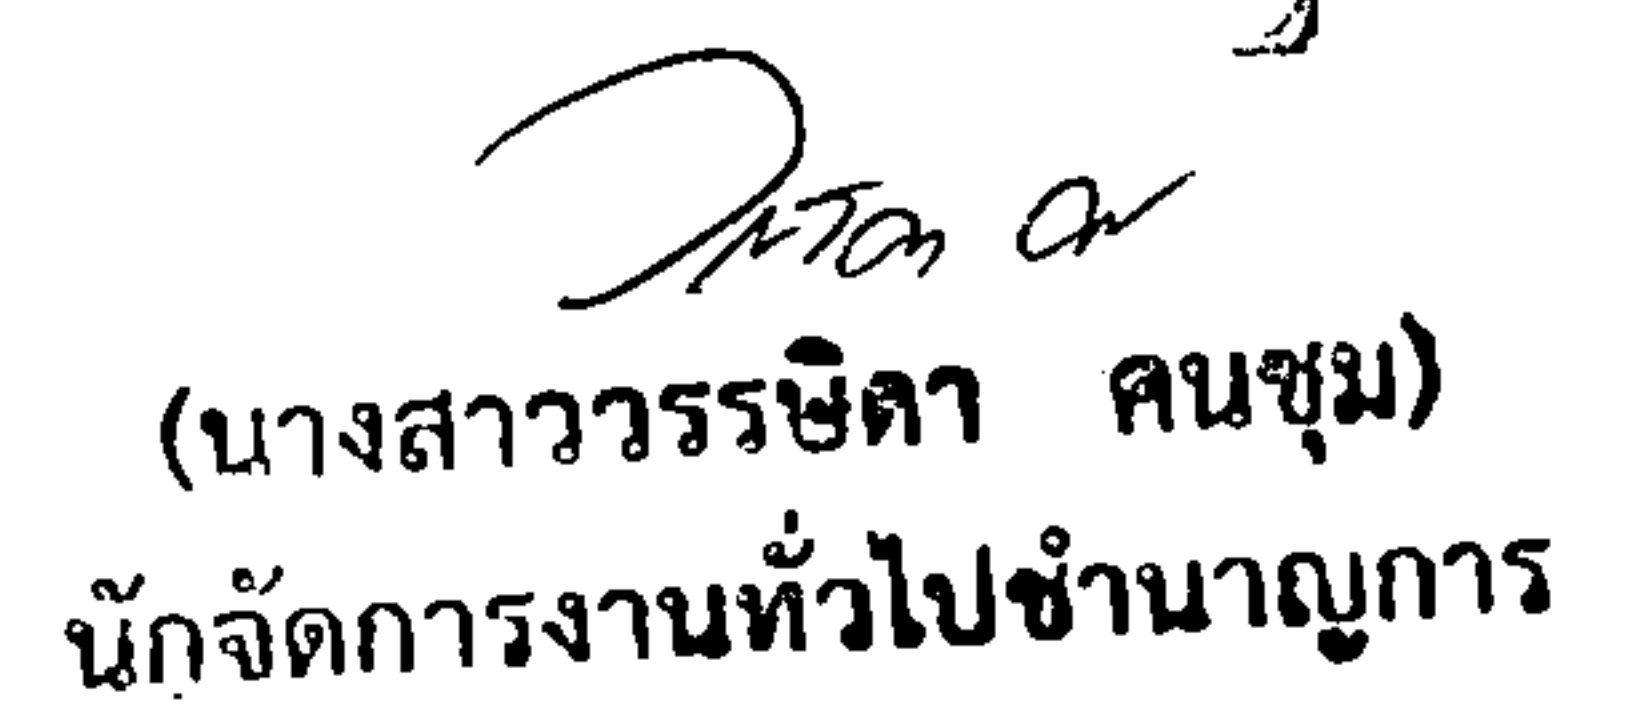 (นางสาววรรษิดา คนชุม)
นักจัดการงานทั่วไปชำนาญการ